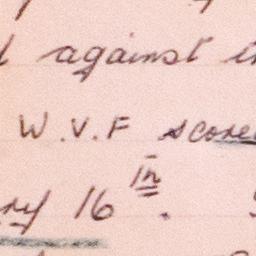 against
W.V.F score
16th.